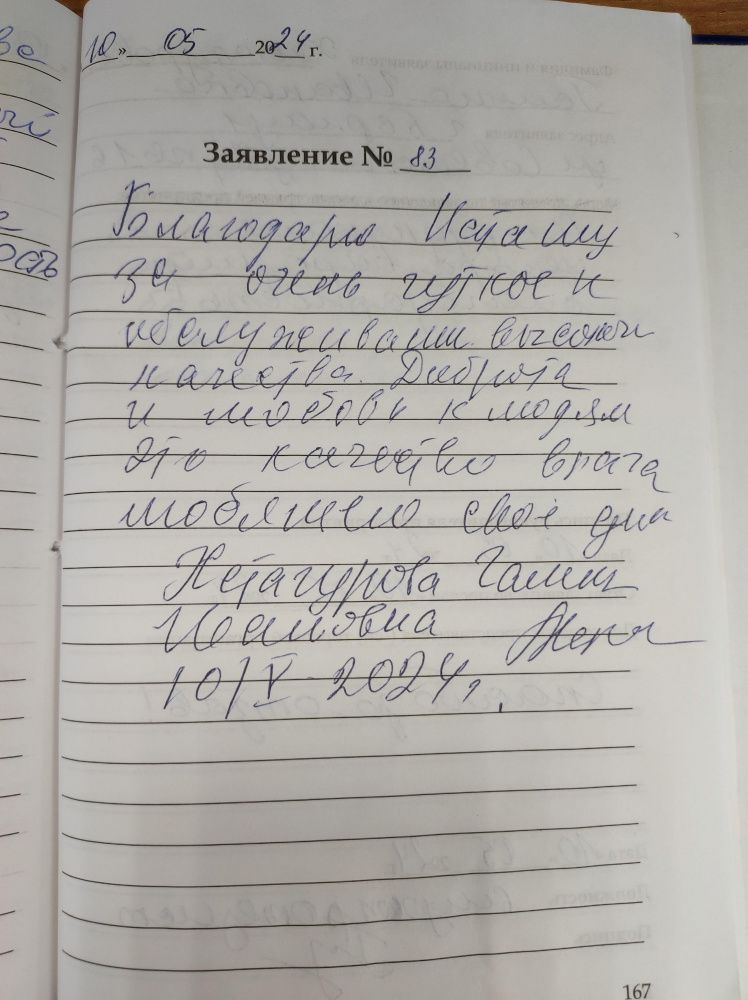 10 » 05 2024 г.
Заявление № 83
Благодарю Наташу
за очень чуткое и
обслуживани. высокачи
качества. Доброта
и любовь к людям
это качество врача
любящего свое дил
Хетагурова Галин
Ивановна
10/V 2024г.
167